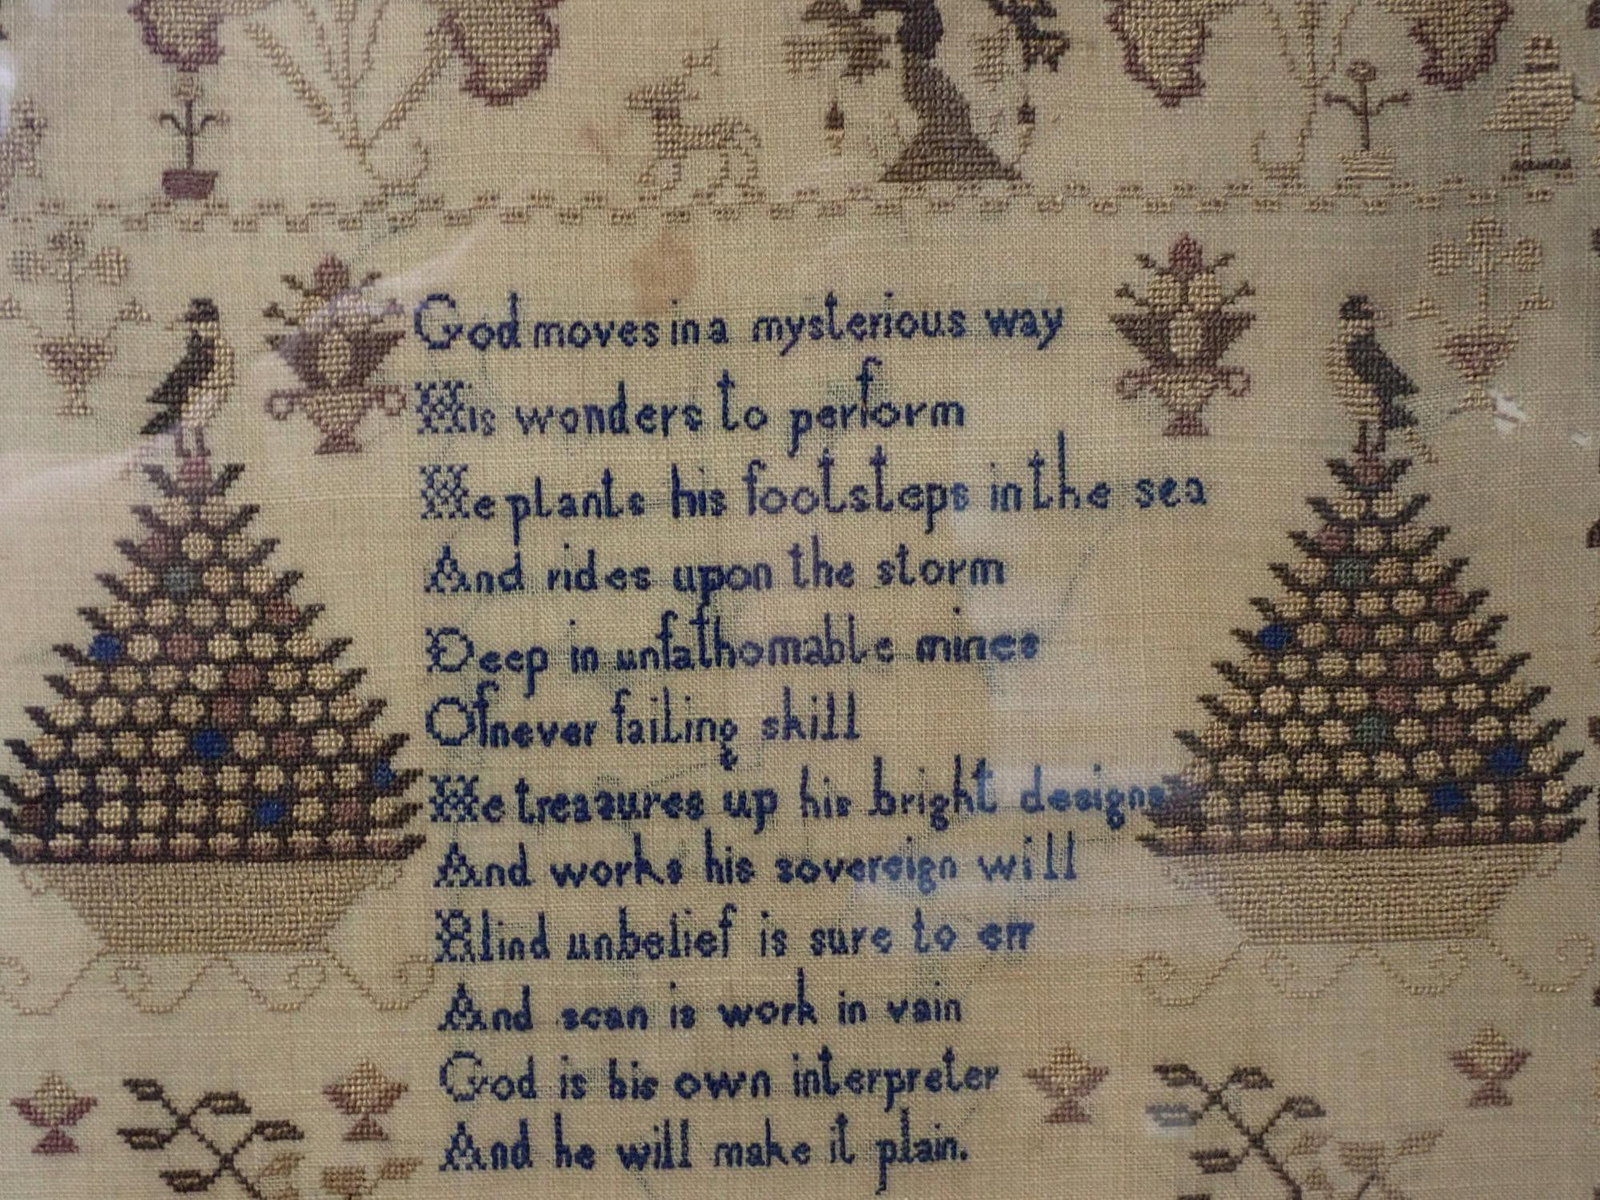 God moves in a mysterious way
His wonders to perform
He plants his footsteps in the sea
And rides upon the storm
Deep in unfathomable mines
Of never failing skill
He treasures up his bright designs
And works his sovereign will
Blind unbelief is sure to err
And scan is work in vain
God is his own interpreter
And he will make it plain.